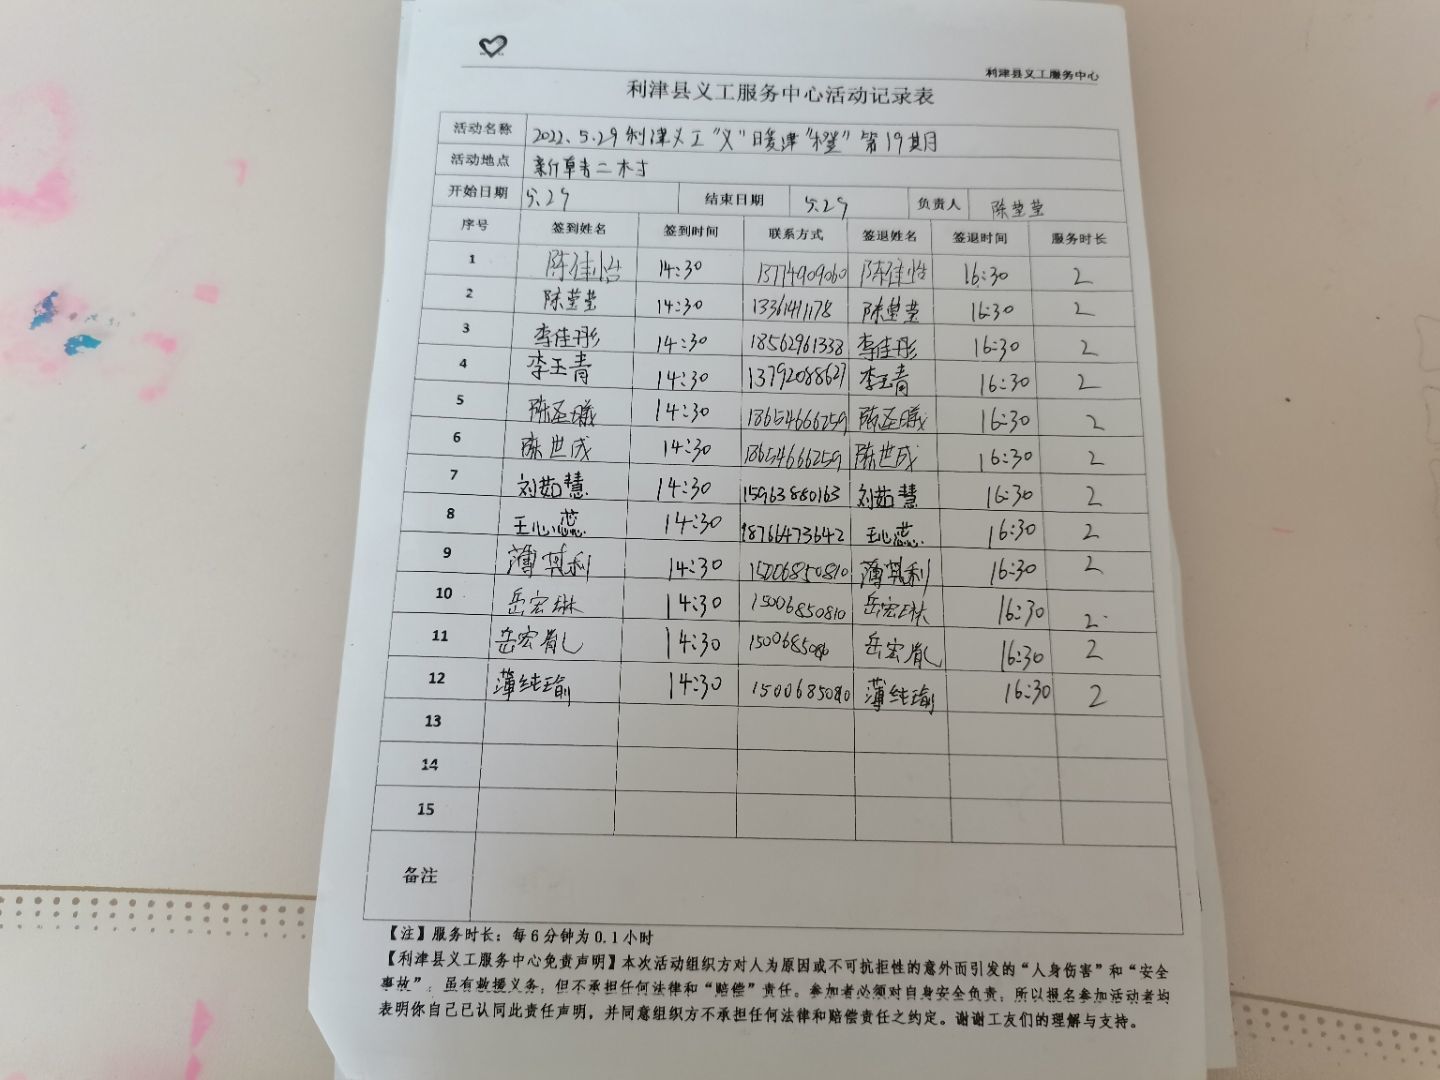 利津县义工服务中心
利津县义工服务中心活动记录表
活动名称 2022.5.29利津义工“义”日暖津“橙”第19期月
活动地点 新草青二木寸
开始日期 5.29 结束日期 5.29 负责人 陈莹莹
序号 签到姓名 签到时间 联系方式 签退姓名 签退时间 服务时长
1 陈佳怡 14:30 13774909060 陈佳怡 16:30 2
2 陈莹莹 14:30 1336141178 陈莹莹 16:30 2
3 李佳彤 14:30 18562961338 李佳彤 16:30 2
4 李玉青 14:30 13792088627 李玉青 16:30 2
5 陈圣曦 14:30 18654666259 陈圣曦 16:30 2
6 陈世成 14:30 18654666259 陈世成 16:30 2
7 刘茹慧 14:30 15963880163 刘茹慧 16:30 2
8 王心蕊 14:30 18766473642 王心蕊 16:30 2
9 薄其利 14:30 15006850810 薄其利 16:30 2
10 岳宏琳 14:30 15006850810 岳宏琳 16:30 2
11 岳宏胤 14:30 16:30 2
12 薄纯瑜 14:30 15006850810 薄纯瑜 16:30 2
13
14
15
备注
【注】服务时长：每6分钟为0.1小时
【利津县义工服务中心免责声明】本次活动组织方对人为原因或不可抗拒性的意外而引发的“人身伤害”和“安全
事故”，虽有救援义务，但不承担任何法律和“赔偿”责任。参加者必须对自身安全负责，所以报名参加活动者均
表明你自己已认同此责任声明，并同意组织方不承担任何法律和赔偿责任之约定。谢谢工友们的理解与支持。